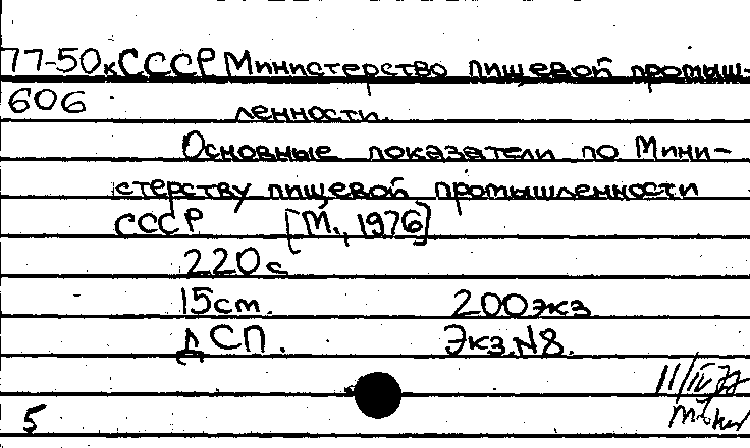 77-50к СССР Министерство пищевой промыш-
606 ленности.
Основные показатели по Мини-
стерству пищевой промышленности
СССР [М., 1976]
220 с
15 ст. 200 экз
ДСП. Экз. №8.
11/IV 77
5